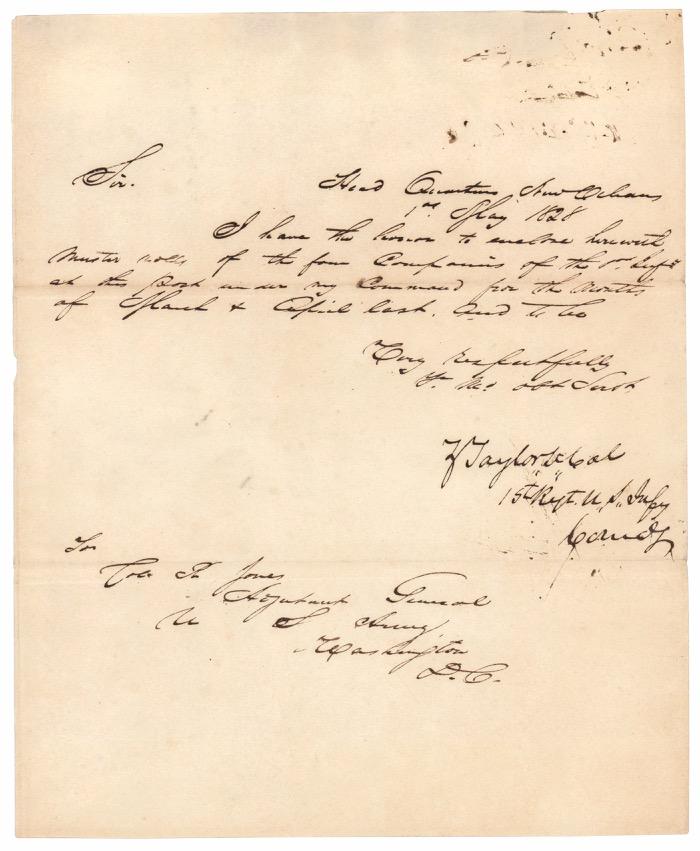 Sir.
Head Quarters New Orleans
1st May 1828
I have the honor to enclose herewith,
muster rolls of the four Companies of the 1st Infy
at this Post under my Command for the Months
of March & April last. And to be
Very Respectfully
Yr. Mo. obt Servt.
Z Taylor Lt Col
1st Regt. U,, S,, Infy
Comdg
To
Col. R Jones
Adjutant General
U S Army,
Washington
D.C.